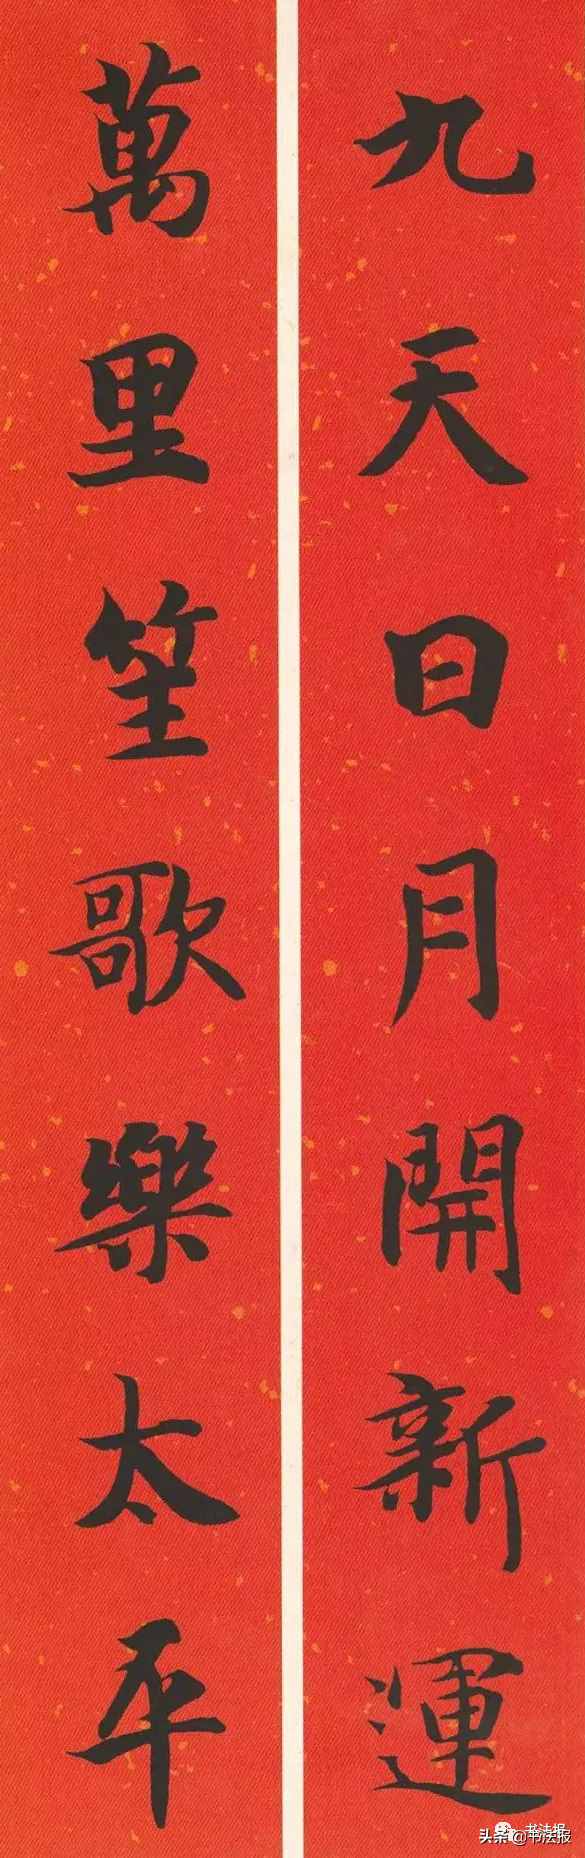 九天日月開新運
萬里笙歌樂太平
书法报
头条@书法报